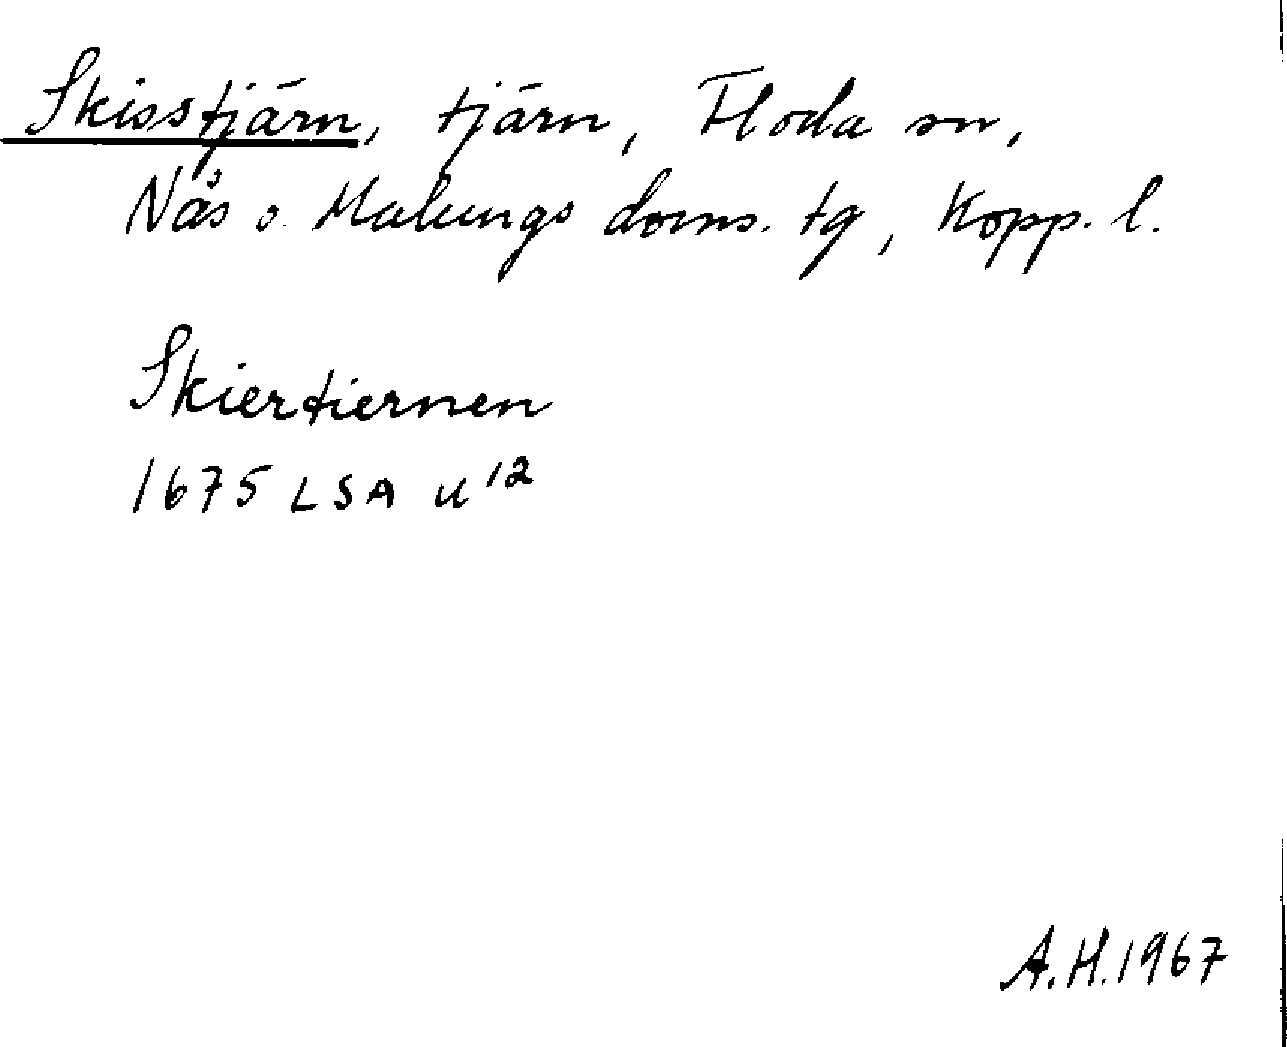 Skisstjärn, tjärn, Floda sn,
Nås o. Malungs doms. tg, Kopp. l.
Skiertiernen
1675 LSA U 12
A.H. 1967